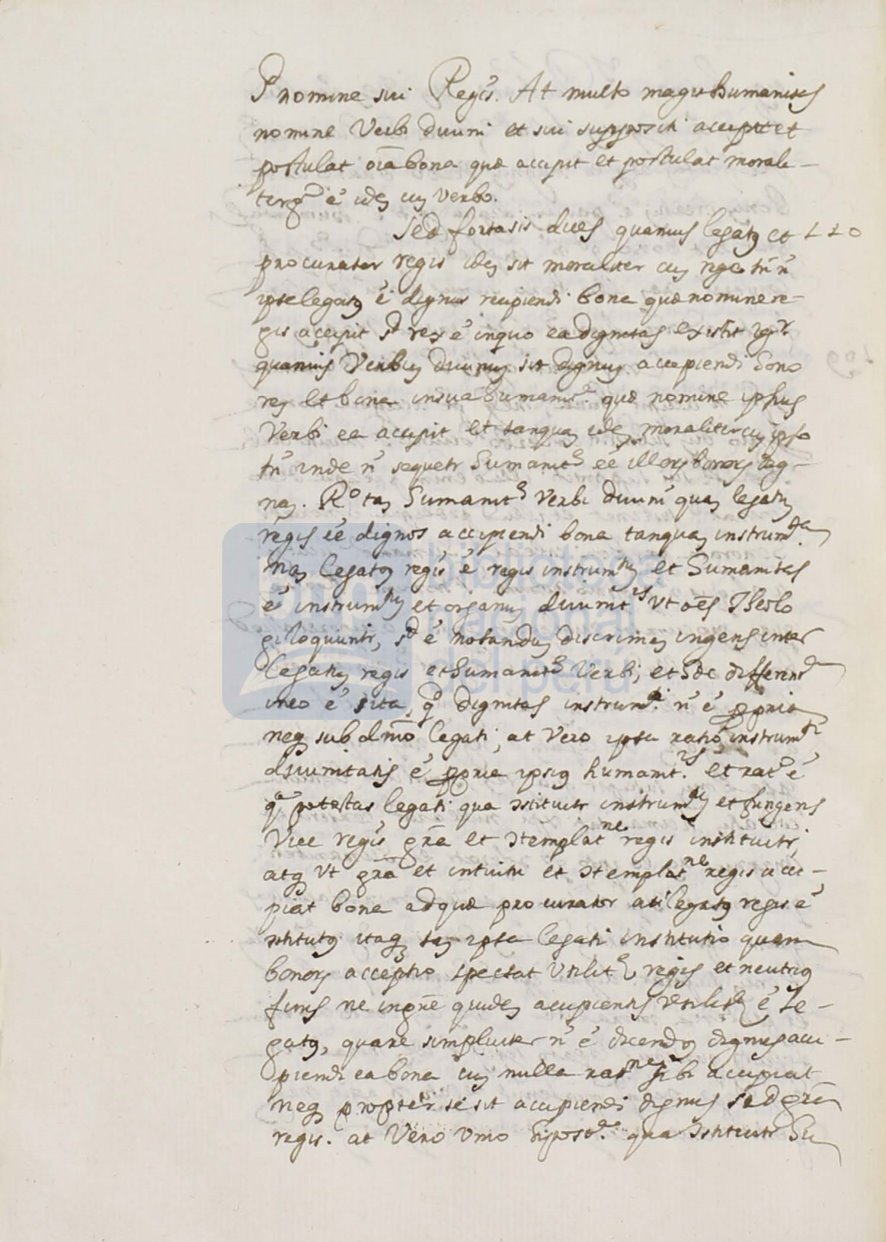 nomine sui Regis. At multo magis humanitas
nomine Verbi divini et sui suppositi accipit et
postulat oĩa bona quæ accipit et postulat morali-
terq̃ ẽ idẽ cũ Verbo.
Sed fortasis dices quamvis legatq et 110
procurator regis idẽ sit moraliter cũ rege tñ ñ
ipse legatq ẽ dignus recipiendi bona quæ nomine re-
gis accipit sd rex ẽ in quo ea dignitas existit igr
quamvis Verbũ divinũ sit dignũ accipiendi hono
res et bona in sua humanite quæ nomine ipsius
Verbi ea accipit et tanquã idẽ moraliter cũ ipso
tñ inde ñ sequetr humanitẽ eẽ illors bonors dig-
nã. Ro tã humanitẽ Verbi divini quã legatũ
regis eẽ dignos accipiendi bona tanquã instrumta
Nã legatq regis ẽ regis instrumtũ et humanitas
ẽ instrumtũ et organũ divinitis Vt oẽs Theolo
gi loquuntr, sd ẽ notandũ discrimẽ ingens inter
legatũ regis et humanitẽ Verbi, et hæc differentia
in eo ẽ sita, qd dignitas instrumti ñ ẽ ppria
neq sub dmo legati, at Vero ipsa ratio instrumti
divinitatis ẽ ppria ipsiq humanitis et ratio ẽ
qa potestas legati qua 9stituitr instrumtũ et fungens
Vice regis grã et 9templatne regis instituitr,
atq Vt grã et intuitu et 9templatne regis acci-
piat bona ad quæ procurator aut legatq regis ẽ
9stitutq itaq tã ipsa legati institutio quam
bonors acceptio spectat Vtilitẽ regis et neutriq
finis ne in grẽ quidẽ accipientis Vtilitẽ ẽ le-
gatq, quare simpliciter ñ ẽ dicendq dignus acci-
piendi ea bona cũ nulla ratne sibi accipiat
neq propter se sit accipiendi dignus sed grã
regis. at Vero Vnio hipostca qua 9stituitr hu